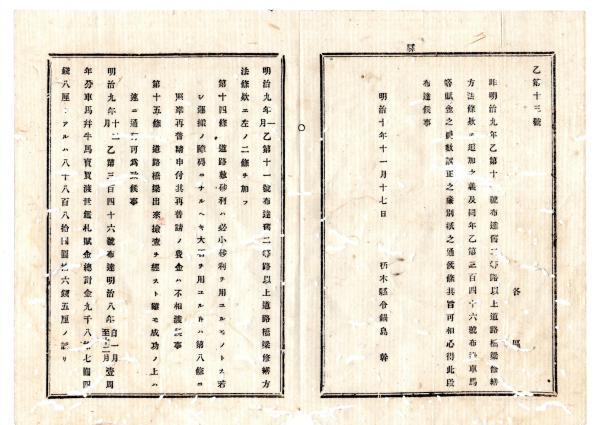 乙第十三號
各區
昨明治九年乙第十一號布達舊二等路以上道路橋梁修繕
方法條欵ヱ追加之義及同年乙第三百四十六號布達車馬
等賦金之員數誤正之廉別紙之通候條其旨可相心得此段
布達候事
明治十年十一月十七日
栃木縣令鍋島幹
明治九年一月乙第十一號布達舊二等路以上道路橋梁修繕方
法條欵ヱ左ノ二條ヲ加フ
第十四條 道路敷砂利ハ必小砂利ヲ用ユルモノトス若
シ運搬ノ障碍トナルヘキ大石ヲ用ユルトキハ第八條ニ
照準再普請申付其再普請ノ費金ハ不相渡候事
第十五條 道路橋梁出來檢査ヲ經スト雖モ成功ノ上ハ
速ニ通行可為致候事
明治九年十二月乙第三百四十六號布達明治八年自一月至十二月壹周
年分車馬幷牛馬賣買渡世鑑札賦金總計金九千八百七圓四
錢八厘トアルハ八千八百八拾圓六錢五厘ノ誤リ